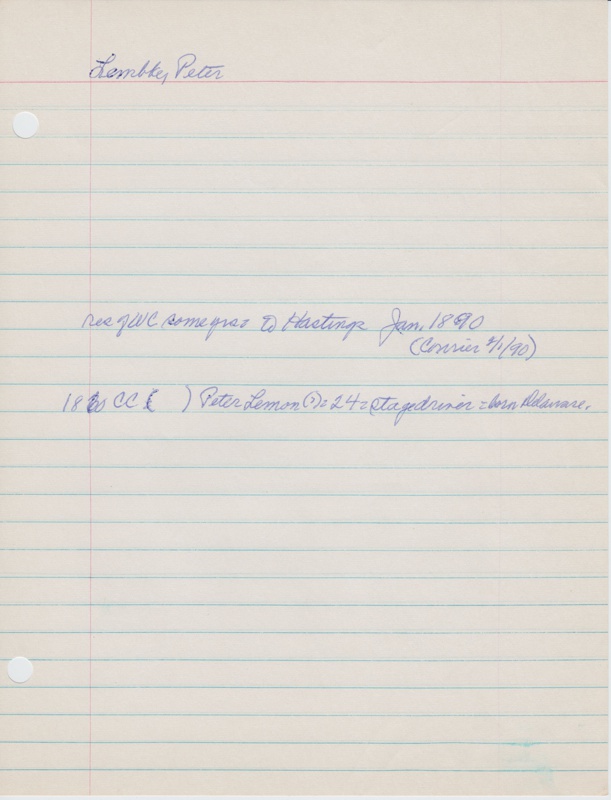 Lembke, Peter
res of WC some yrs = to Hastings Jan. 1890
(Courier 2/1/90)
1860 CC ( ) Peter Lemon (?) = 24 = stagedriver = born Delaware.